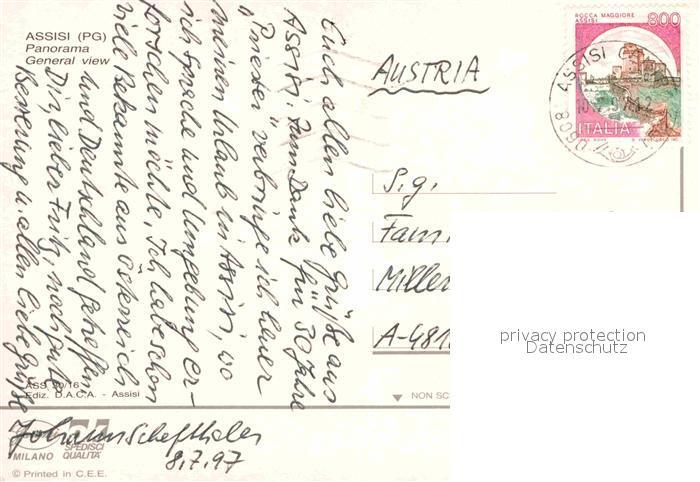 ASSISI (PG)
Panorama
General view
Euch allen liebe Grüße aus
Assisi. Zum Dank für 30 Jahre
"Priester" verbringe ich heuer
meinen Urlaub in Assisi, wo
ich Gnade und Umgebung er-
forschen möchte. Ich habe schon
viele Bekannte aus Österreich
und Deutschland getroffen.
Dir, lieber Fritz, noch gute
Besserung u. allen liebe Grüße
Johann
8.7.97
AUSTRIA
ROCCA MAGGIORE
ASSISI
800
ITALIA
ASSISI
S.g.
Fam.
Miller
A-481
privacy protection
Datenschutz
NON SC
ASS 20/16
Ediz. D.A.C.A. - Assisi
MILANO
SPEDISCI
QUALITÀ
© Printed in C.E.E.